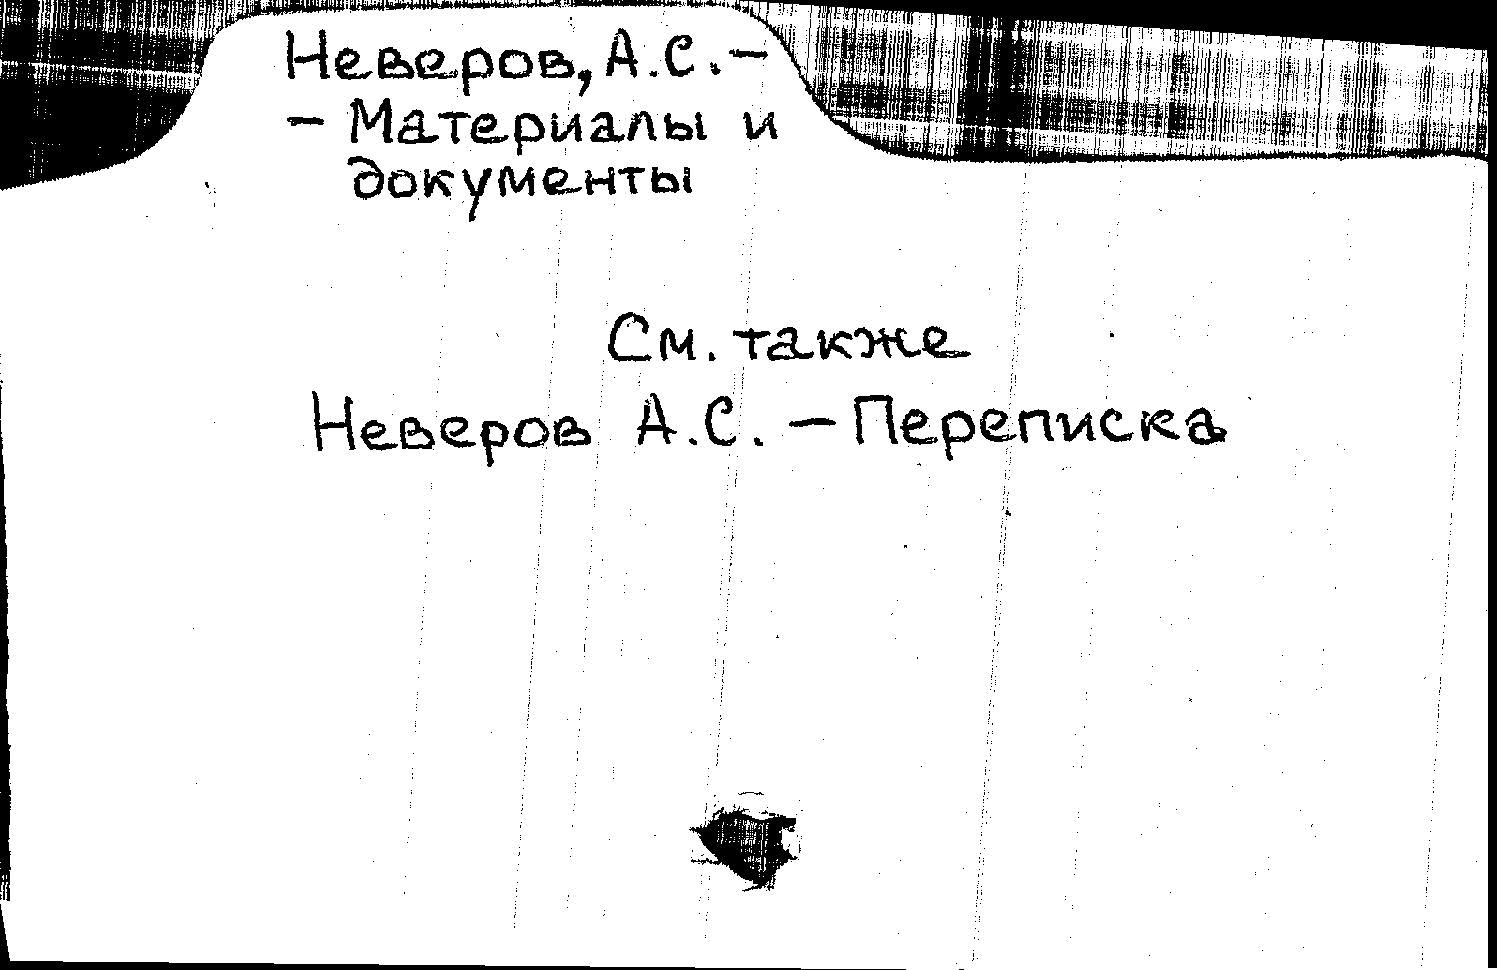 Неверов, А.С. –
– Материалы и
документы
См. также
Неверов А.С. – Переписка